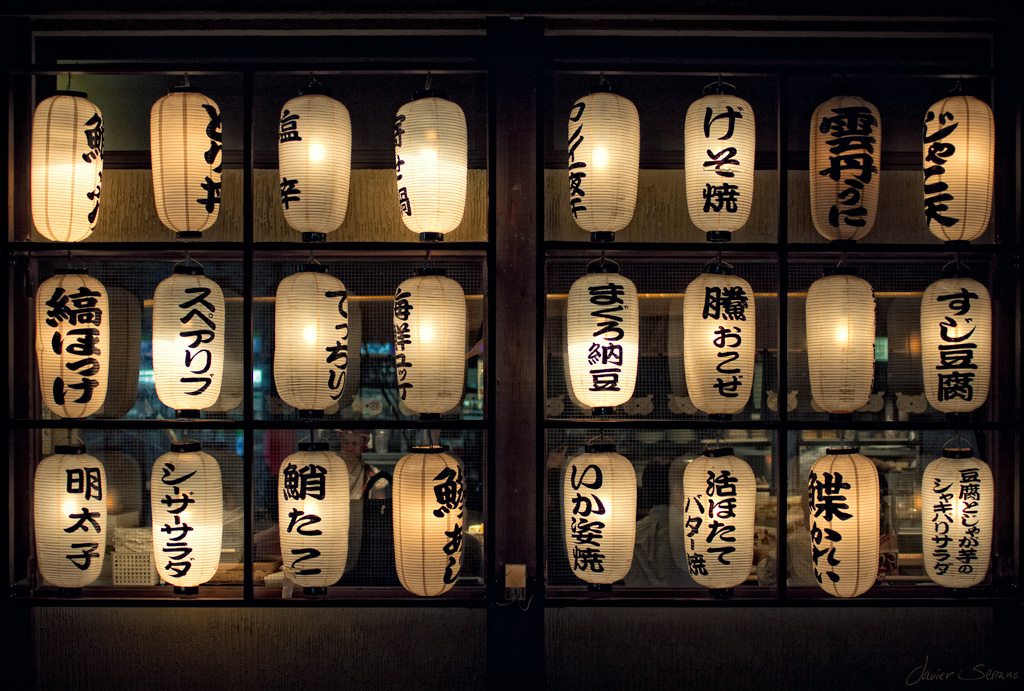 とり丼
塩
辛
げそ焼
雲丹うに
じゃこ天
縞ほっけ
スペアリブ
てっちり
海鮮ユッケ
まぐろ納豆
鰧おこぜ
すじ豆腐
明太子
シーザーサラダ
鮹たこ
いか姿焼
活ほたて
バター焼
鰈かれい
豆腐とじゃが芋の
シャキパリサラダ
Javier Serrano